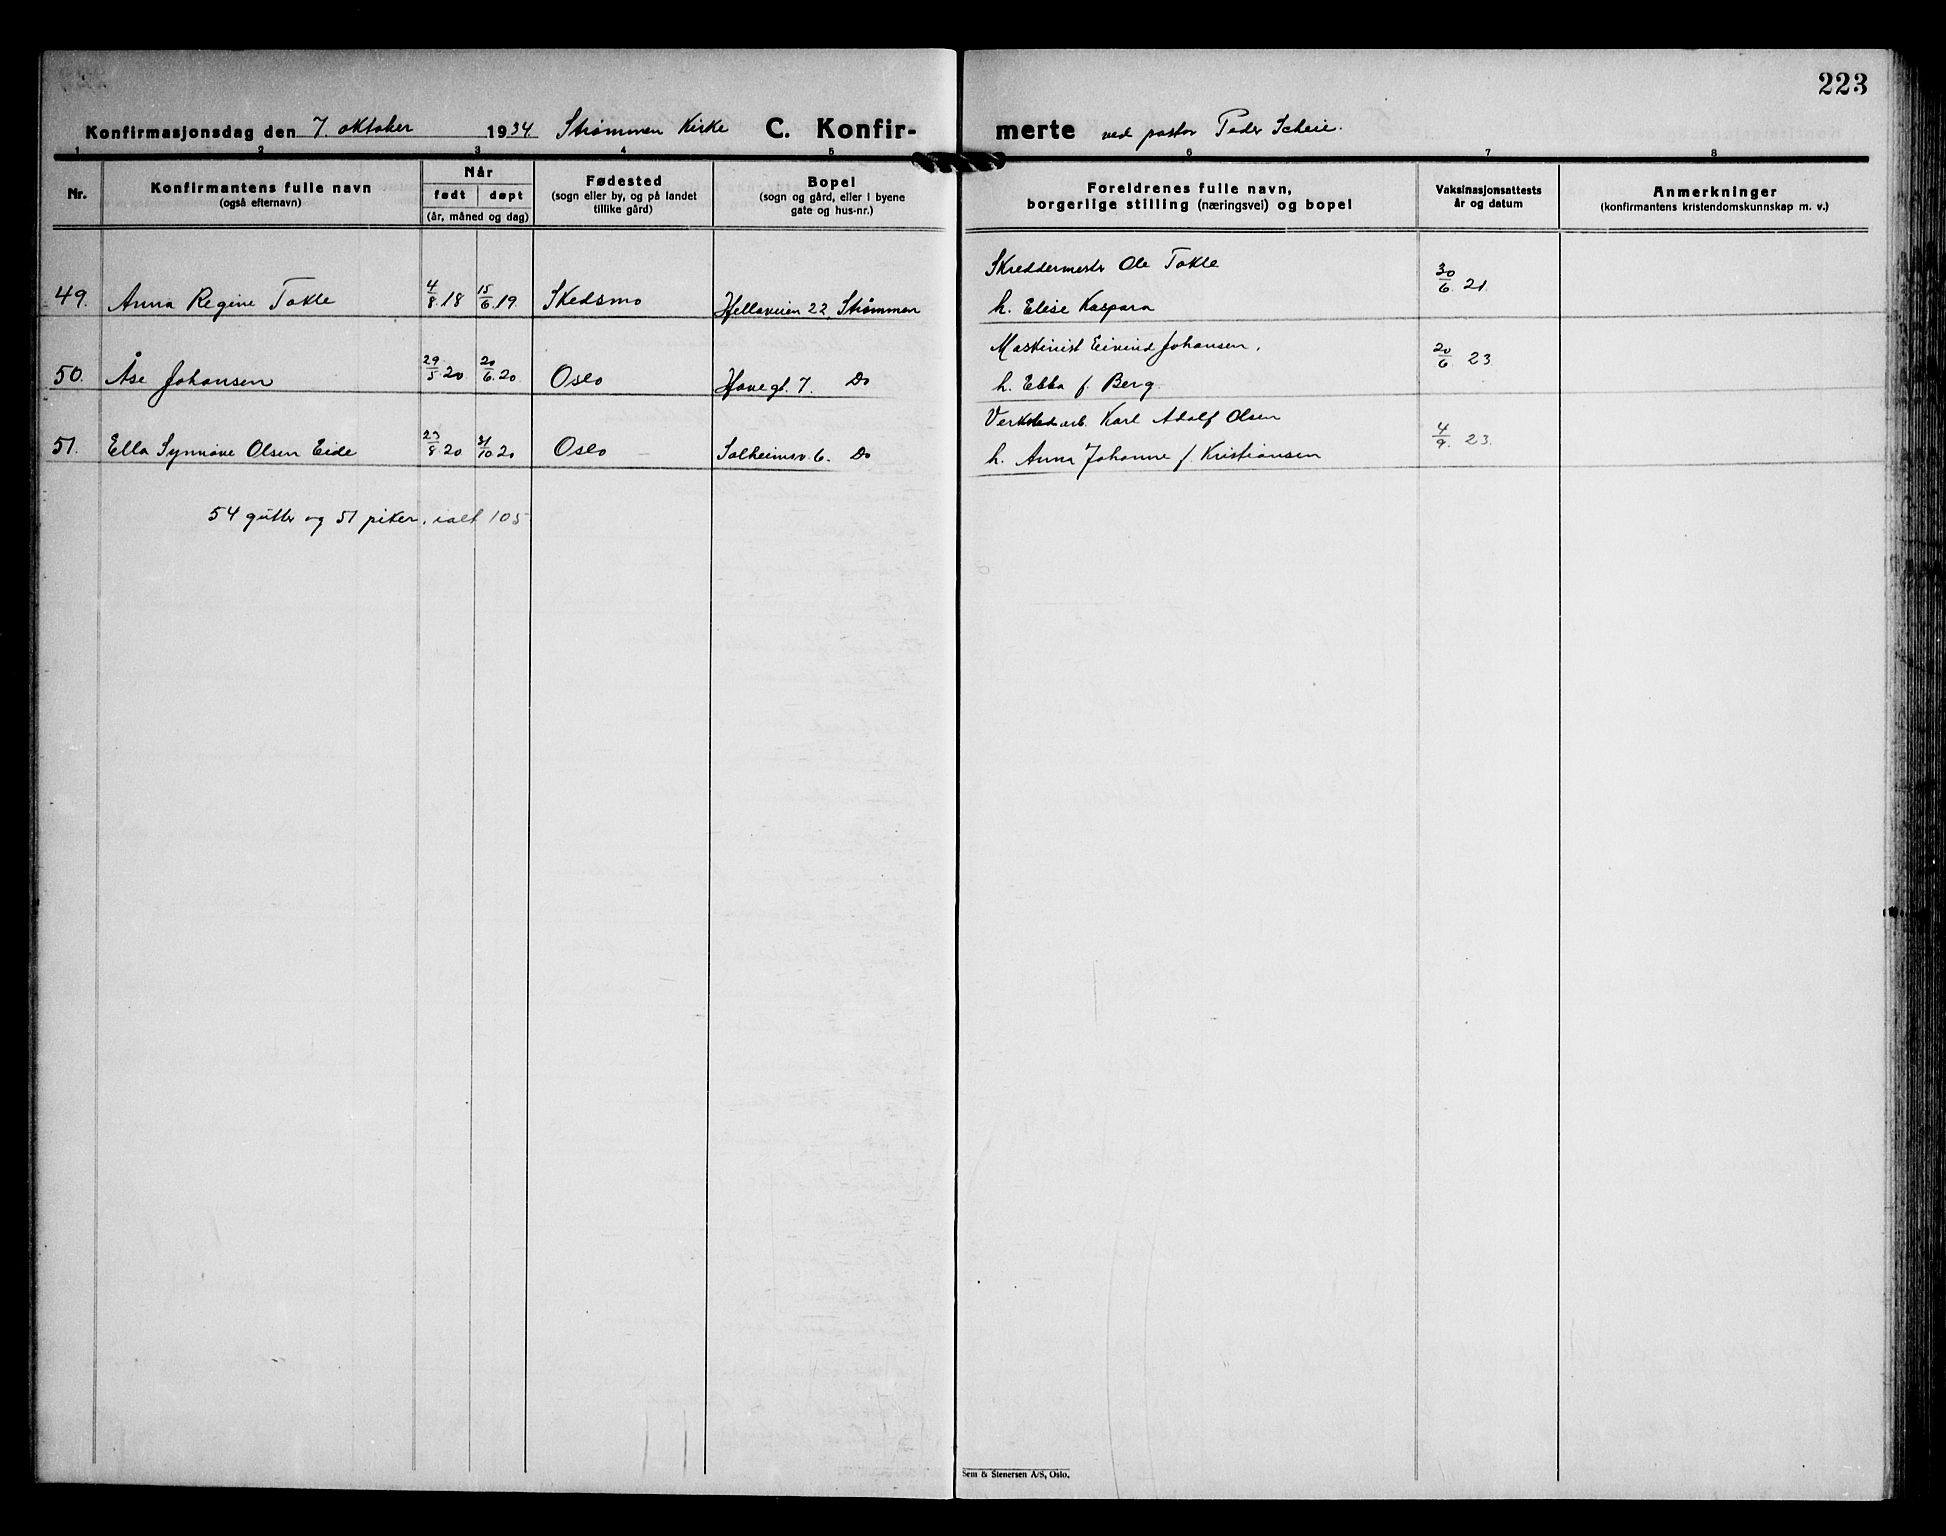 223
Konfirmasjonsdag den 7. oktober 1934 Strømmen Kirke C. Konfir-
merte ved pastor Peder Scheie.
1 2 3 4 5 6 7 8
Nr.
Konfirmantens fulle navn
(også efternavn)
Når
født døpt
(år, måned og dag)
Fødested
(sogn eller by, og på landet
tillike gård)
Bopel
(sogn og gård, eller i byene
gate og hus-nr.)
Foreldrenes fulle navn,
borgerlige stilling (næringsvei) og bopel
Vaksinasjonsattests
år og datum
Anmerkninger
(konfirmantens kristendomskunnskap m. v.)
49. Anna Regine Tokle 4/8.18 15/6.19. Skedsmo Hellaveien 22, Strømmen
Skreddermestr Ole Tokle
h. Elise Kaspara
30/6. 21.
50. Åse Johansen 29/5.20 20/6.20 Oslo Havegt. 7. Do
Maskinist Eivind Johansen,
h. Ebba f. Berg.
20/6 23
51. Ella Synnøve Olsen Eide 23/8 20 31/10 20 Oslo Solheimsv. 6. Do
Verkstedarb. Karl Adolf Olsen
h. Anna Johanne f. Kristiansen
4/9. 23.
54 gutter og 51 piker, ialt 105
Sem & Stenersen A/S, Oslo.